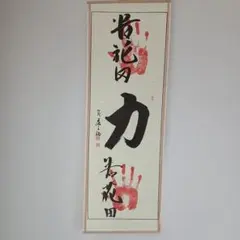 貴花田
力
若花田